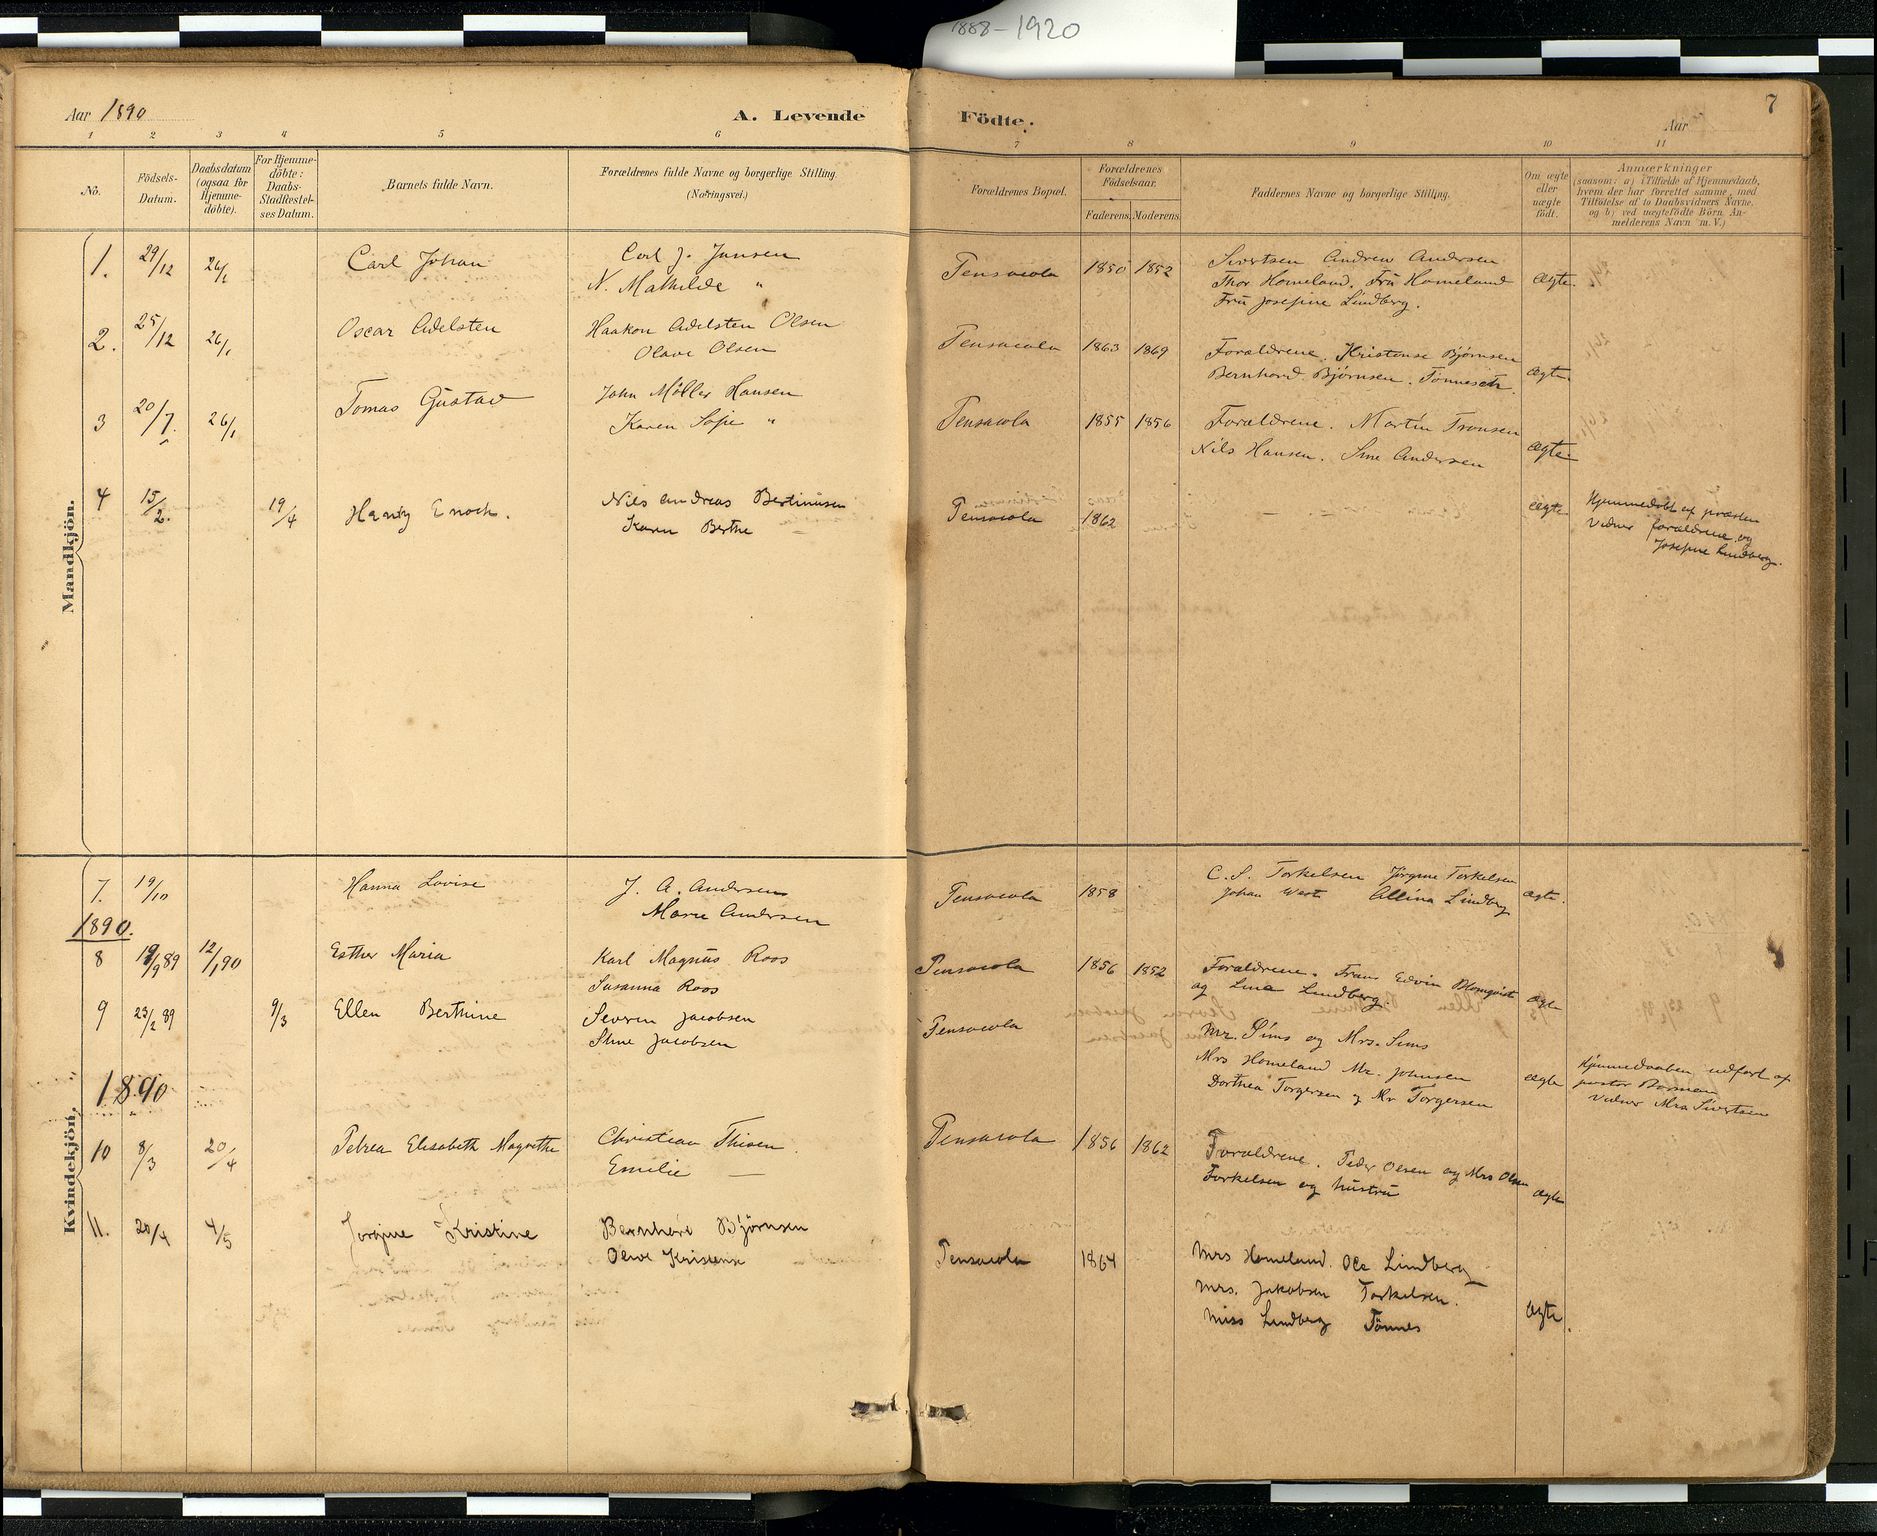 1888-1920
Aar 1890
A. Levende
Födte.
Aar
7
1 2 3 4 5 6 7 8 9 10 11
No.
Födsels-
Datum.
Daabsdatum
(ogsaa for
Hjemme-
döbte).
For Hjemme-
döbte:
Daabs-
Stadfæstel-
ses Datum.
Barnets fulde Navn.
Forældrenes fulde Navne og borgerlige Stilling.
(Næringsvei.)
Forældrenes Bopæl.
Forældrenes
Födselsaar.
Faderens. Moderens.
Faddernes Navne og borgerlige Stilling.
Om ægte
eller
uægte
födt.
Anmærkninger
(saasom: a) i Tilfælde af Hjemmedaab,
hvem der har forrettet samme, med
Tilföielse af to Daabsvidners Navne,
og b) ved uægtefödte Börn An-
melderens Navn m. V.)
Mandkjön.
1. 29/12 26/1 Carl Johan Carl J. Jansen Pensacola 1850 1852 Sivertsen Andrew Andersen ægte.
N. Mathilde " Thor Homeland. Fru Homeland
Fru Josefine Lindberg.
2. 25/12 26/1 Oscar Adelsten Haakon Adelsten Olsen Pensacola 1863 1869 Forældrene. Kristense Bjørnsen ægte.
Olave Olsen Bernhard Bjørnsen.
3 20/7. 26/1 Tomas Gustav John Møller Hansen Pensacola 1855 1856 Forældrene. Martin Tronsen ægte.
Karen Sofie " Nils Hansen. Sine Andersen
4 15/2. 19/4 Enoch. Nils Andreas Bertinusen Pensacola 1862 — — ægte Hjemmedøbt af præsten
Karen Berthe Vidner forældrene og
Josefine Lindberg.
Kvindekjön.
7. 19/10 Hanna Lovise J. A. Andersen Pensacola 1858 C. S. Torkelsen Jørgine Torkelsen ægte.
Marie Andersen Johan West Allina Lindberg
1890.
8 19/9 89 12/1 90 Esther Maria Karl Magnus Roos Pensacola 1856 1852 Forældrene. Frans Edvin Blomqvist ægte
Susanna Roos og Line Lindberg.
9 23/2 89 9/3 Ellen Berthine Severin Jacobsen Pensacola Mr. Sims og Mrs. Sims
Stine Jacobsen Mrs Homeland Mr. Johnsen ægte Hjemmedaaben udført af
Dorthea Torgersen og Mr Torgersen pastor
Vidner Mrs Sivertsen
1890
10 8/3 20/4 Petrea Elisabeth Magrethe Christian Thisen. Pensacola 1856 1862 Forældrene. Peder Olsen og Mrs Olsen ægte
Emilie — Torkelsen og hustru
11. 20/4 4/5 Jorgine Kristine Bernhard Bjørnsen Pensacola 1864 Mrs Homeland. Ole Lindberg
Olave Kristense Mrs. Jakobsen Torkelsen.
Miss Lindberg Tønnes ægte.